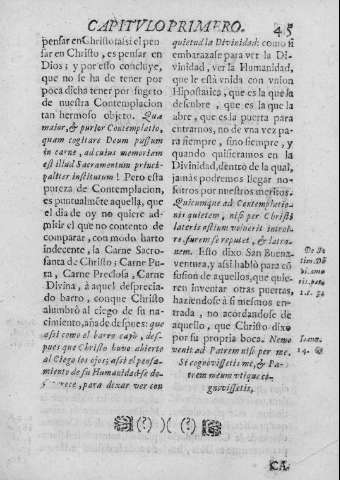 CAPITVLO PRIMERO. 45
pensar en Christo (assi el pen
sar en Christo, es pensar en
Dios; y por esso concluye,
que no se ha de tener por
poca dicha tener por sugeto
de nuestra Contemplacion
tan hermoso objeto. Qua
maior, & purior Contemplatio,
quam cogitare Deum passum
in carne, ad cuius memoriam
est illud Sacramentum princi-
paliter institutum! Pero esta
pureza de Contemplacion,
es puntualmẽte aquella, que
el dia de oy no quiere ad-
mitir el que no contento de
comparar, con modo harto
indecente, la Carne Sacro-
santa de Christo; Carne Pu-
ra, Carne Preciosa, Carne
Divina, à aquel desprecia-
do barro, conque Christo
alumbrò al ciego de su na-
cimiento, añade despues: que
assi como el barro cayò, des-
pues que Christo huvo abierto
al Ciego los ojos; assi el pensa-
miento de su Humanidad se de-
rece, para dexar ver con
quietud la Divinidad: como si
embarazase para ver la Di-
vinidad, ver la Humanidad,
que le està vnida con vnion
Hipostatica, que es la que la
descubre, que es la que la
abre, que es la puerta para
entrarnos, no de vna vez pa-
ra siempre, sino siempre, y
quando quisieramos en la
Divinidad, dentro de la qual,
jamàs podremos llegar no-
sotros por nuestros meritos.
Quicumque ad Contemplatio-
nis quietem, nisi per Christi
lateris ostium voluerit introi-
re, furem se reputet, & latro-
nem. Esto dixo San Buena-
ventura, y assi hablò para cõ
fusion de aquellos, que quie-
ren inventar otras puertas,
haziendose à sì mesmos en-
trada, no acordandose de
aquello, que Christo dixo
por su propria boca. Nemo
venit ad Patrem nisi per me.
Si cognovissetis me, & Pa-
trem meum vtique co-
gnovissetis.
Ioann.
14.
(?) )( (?)
CA-